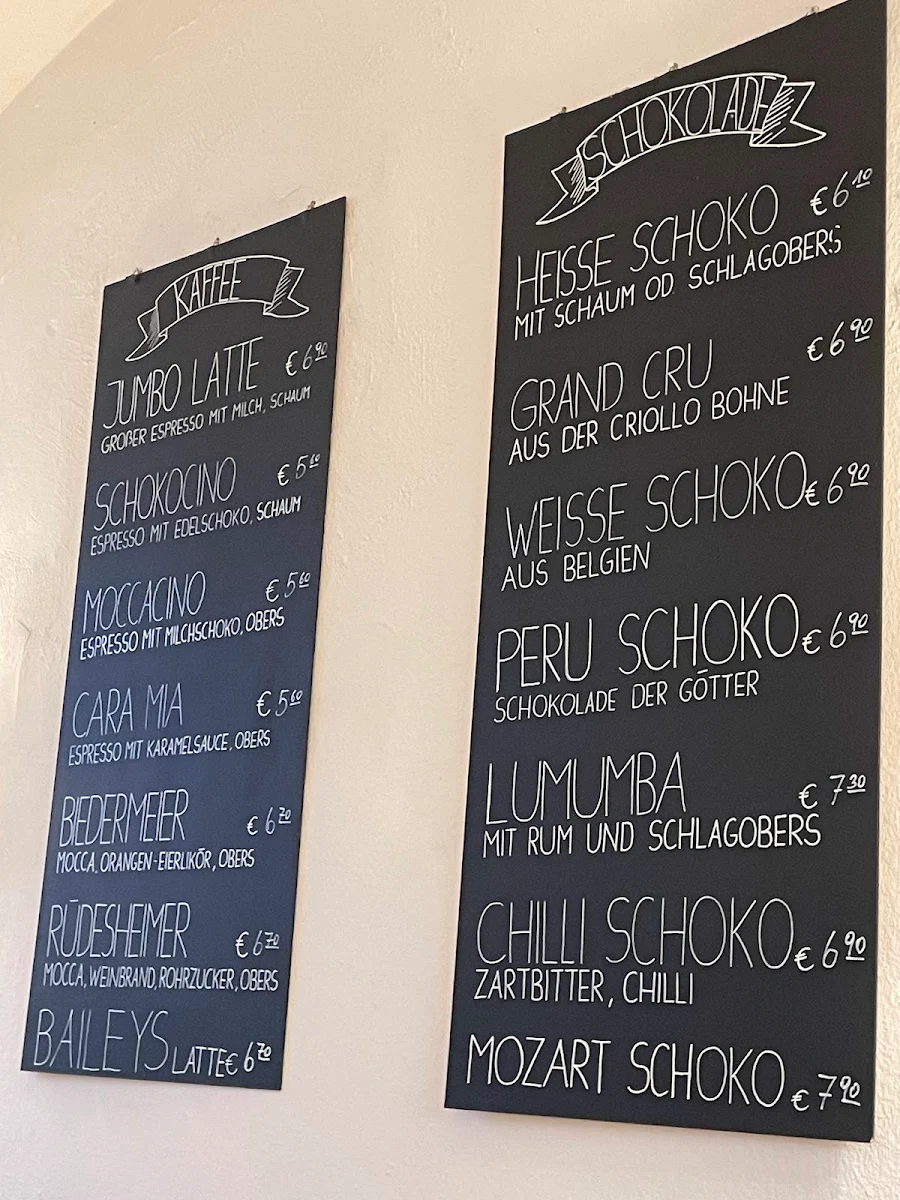 KAFFEE
JUMBO LATTE € 6 90
GROßER ESPRESSO MIT MILCH, SCHAUM
SCHOKOCINO € 5 60
ESPRESSO MIT EDELSCHOKO, SCHAUM
MOCCACINO € 5 60
ESPRESSO MIT MILCHSCHOKO, OBERS
CARA MIA € 5 60
ESPRESSO MIT KARAMELSAUCE, OBERS
BIEDERMEIER € 6 70
MOCCA, ORANGEN-EIERLIKÖR, OBERS
RÜDESHEIMER € 6 70
MOCCA, WEINBRAND, ROHRZUCKER, OBERS
BAILEYS LATTE € 6 70
SCHOKOLADE
HEISSE SCHOKO € 6 10
MIT SCHAUM OD. SCHLAGOBERS
GRAND CRU € 6 90
AUS DER CRIOLLO BOHNE
WEISSE SCHOKO € 6 90
AUS BELGIEN
PERU SCHOKO € 6 90
SCHOKOLADE DER GÖTTER
LUMUMBA € 7 30
MIT RUM UND SCHLAGOBERS
CHILLI SCHOKO € 6 90
ZARTBITTER, CHILLI
MOZART SCHOKO € 7 90